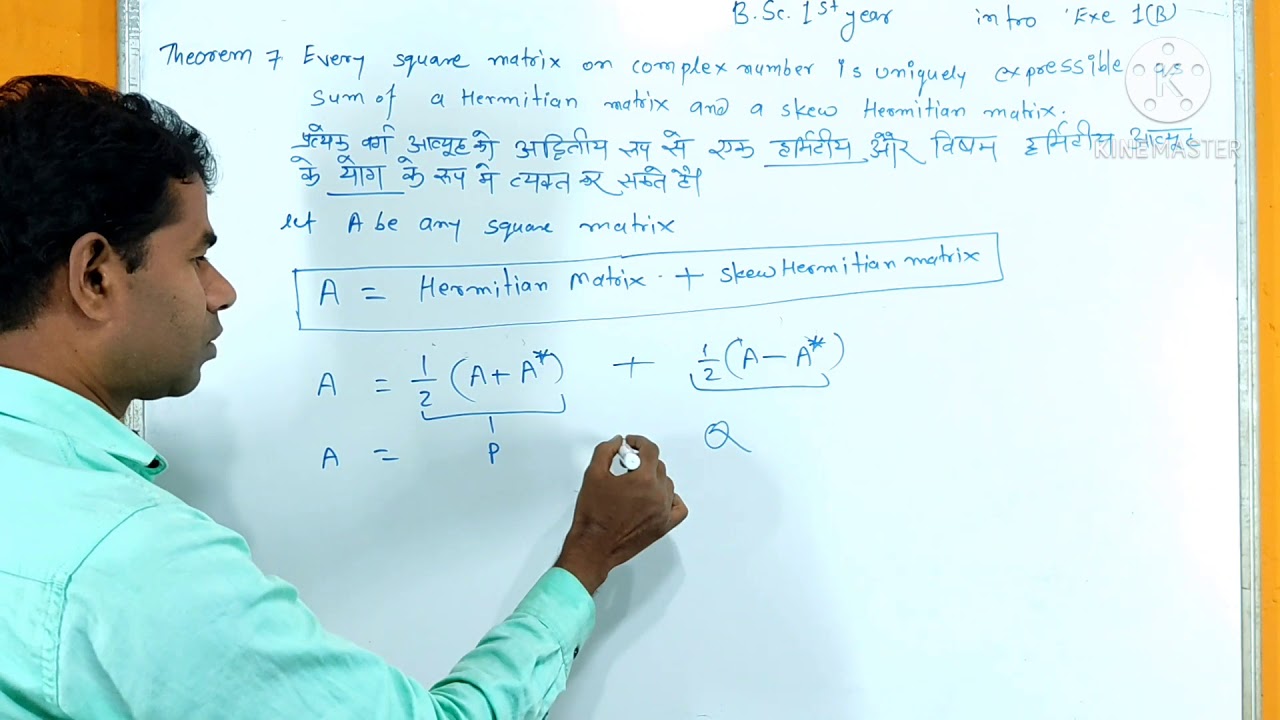 B.Sc. 1st year intro Exe 1(B)
Theorem 7 Every square matrix on complex number is uniquely expressible as
sum of a Hermitian matrix and a skew Hermitian matrix.
प्रत्येक वर्ग आव्यूह को अद्वितीय रूप से एक हर्मिटीय और विषम हर्मिटीय आव्यूह
के योग के रूप मे व्यक्त कर सकते है।
KINEMASTER
let A be any square matrix
A = Hermitian Matrix + skew Hermitian matrix
A = 1/2 (A + A*) + 1/2 (A - A*)
A = P Q